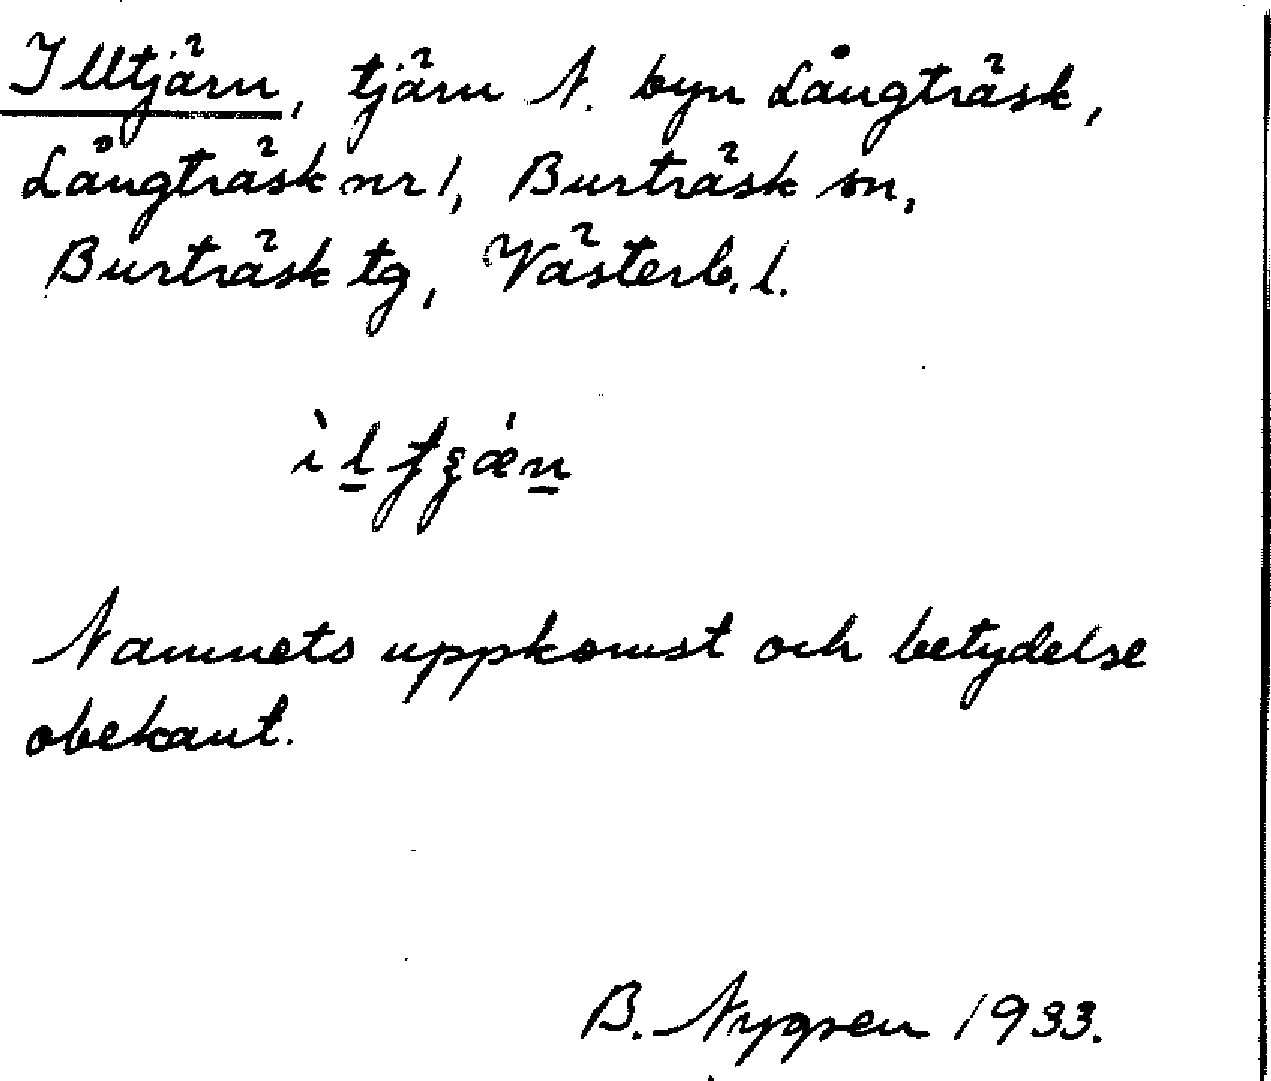 Illtjärn, tjärn N. byn Långträsk,
Långträsk nr 1, Burträsk sn,
Burträsk tg, Västerb. l.
Namnets uppkomst och betydelse
obekant.
B. Nygren 1933.